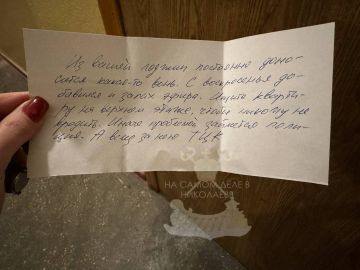 Из вашей лоджии постоянно доно-
сится какая-то вонь. С воскресенья до-
бавился и запах эфира. Ищите кварти-
ру на верхнем этаже, чтобы никому не
вредить. Иначе проблемой займется поли-
ция. А вслед за нею ТЦК
НА САМОМ ДЕЛЕ В
НИКОЛАЕВЕ